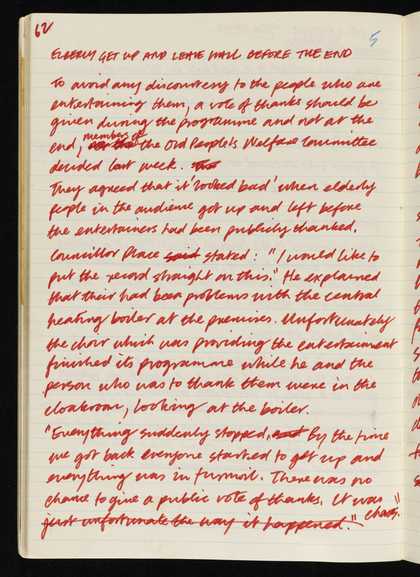 62
5
ELDERLY GET UP AND LEAVE HALL BEFORE THE END
To avoid any discourtesy to the people who are
entertaining them, a vote of thanks should be
given during the programme and not at the
members of
end, the Old People's Welfare Committee
decided last week.
They agreed that it 'looked bad' when elderly
people in the audience got up and left before
the entertainers had been publicly thanked.
Councillor Place said stated: "I would like to
put the record straight on this." He explained
that their had been problems with the central
heating boiler at the premises. Unfortunately
the choir which was providing the entertainment
finished its programme while he and the
person who was to thank them were in the
cloakroom, looking at the boiler.
"Everything suddenly stopped, and By the time
we got back everyone started to get up and
everything was in turmoil. There was no
chance to give a public vote of thanks. It was
just unfortunate the way it happened." chaos."